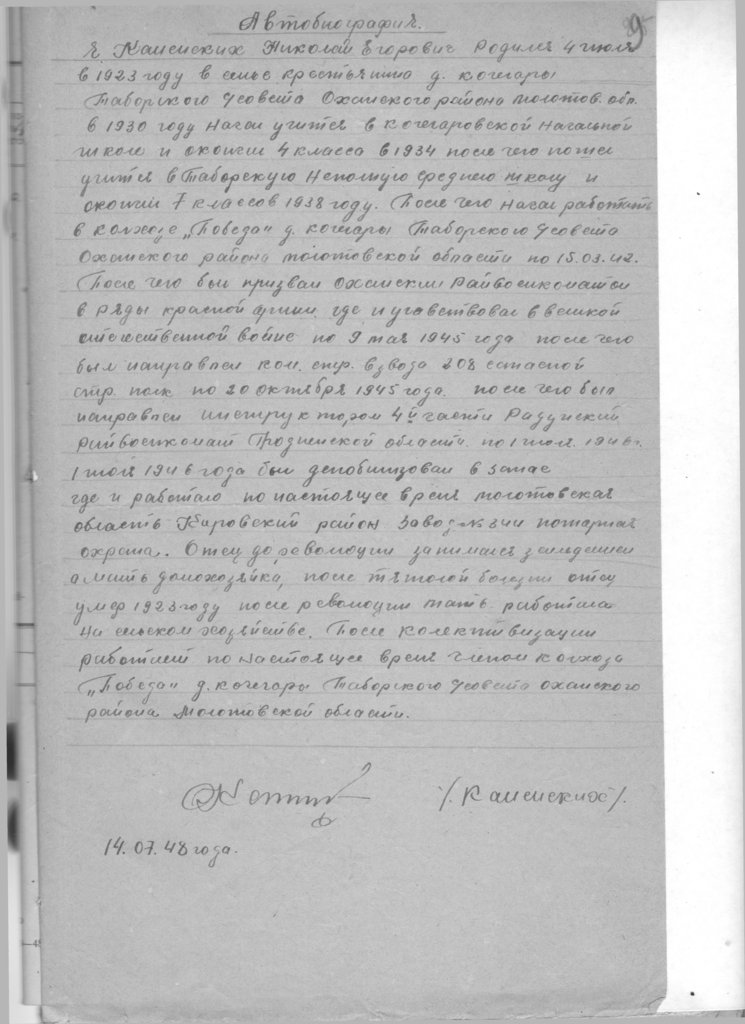 9
Автобиография.
Я Каменских Николай Егорович родился 4 июля
в 1923 году в семье крестьянина д. кочегары
Таборского с/совета Оханского района молотов. обл.
в 1930 году начал учится в кочегаровской начальной
школе и окончил 4 класса в 1934 после чего пошел
учится в Таборскую неполную среднею школу и
окончил 7 классов 1938 году. После чего начал работать
в колхозе „Победа" д. кочегары Таборского с/совета
Оханского района молотовской области по 15.03.42.
После чего был призван Оханским Райвоенкоматом
в ряды красной армии где и участвовал в великой
отечественной войне по 9 мая 1945 года после чего
был направлен ком. стр. взвода 208
стр. полк по 20 октября 1945 года. после чего был
направлен инструктором 4й части Радунский
райвоенкомат Гродненской области. по 1 июля. 1946 г.
1 июля 1946 года был демобилизован в запас
где и работаю по настоящее время молотовская
область Кировский район завод пожарная
охрана. Отец до революции занимался земледелием
а мать домохозяйка, после тяжолой болезни отец
умер 1923 году после революции мать работала
на сельском хозяйстве. После колективизации
работает по настоящее время членом колхоза
„Победа" д. кочегары Таборского с/совета оханского
района Молотовской области.
/Каменских/.
14.07.48 года.